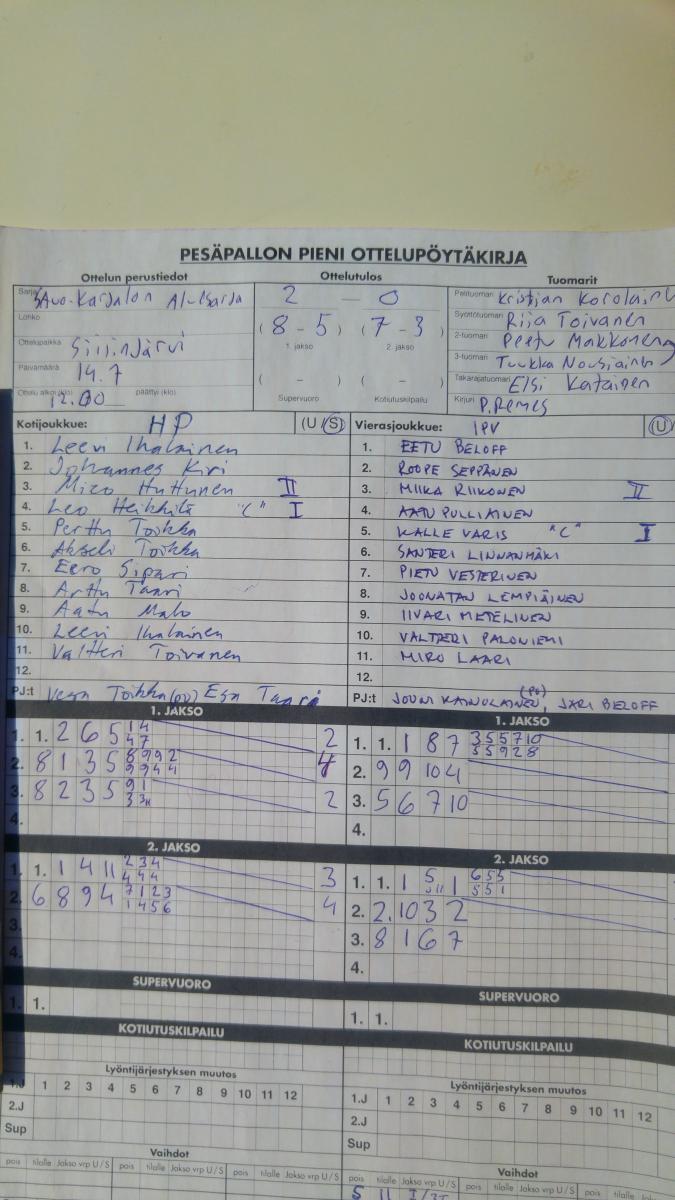 PESÄPALLON PIENI OTTELUPÖYTÄKIRJA
Ottelun perustiedot Ottelutulos Tuomarit
Sarja Savo-Karjalan Aluesarja 2 - 0 Pelituomari Kristjan
Lohko (8-5) (7-3) Syöttötuomari Riia Toivanen
1. jakso 2. jakso
Ottelupaikka Siilinjärvi 2-tuomari Peetu Makkonen
Päivämäärä 14.7 ( - ) ( - ) 3-tuomari Tuukka Nousiainen
Ottelu alkoi (klo) 12.00 päättyi (klo) Supervuoro Kotiutuskilpailu Takarajatuomari Elsi Katainen
Kirjuri P. Remes
Kotijoukkue: HP (U / S) Vierasjoukkue: IPV (U
1. Leevi Ihalainen 1. EETU BELOFF
2. Johannes Kiri 2. ROOPE SEPPÄNEN
3. Mico Huttunen II 3. MIIKA RIIKONEN II
4. Leo Heikkilä "C" I 4. AATU PULLIAINEN
5. Perttu Toikka 5. KALLE VARIS "C" I
6. Akseli Toikka 6. SANTERI LINNANMÄKI
7. Eero Sipari 7. PIETU VESTERINEN
8. Arttu Taari 8. JOONATAN LEMPIÄINEN
9. Aatu Malo 9. IIVARI METELINEN
10. Leevi Ihalainen 10. VALTTERI PALONIEMI
11. Valtteri Toivanen 11. MIRO LAARI
12. 12.
PJ:t Vesa Toikka (PV) Esa PJ:t JOUNI KAINULAINEN (PV), JARI BELOFF
1. JAKSO 1. JAKSO
1. 1. 2 6 5 14 47 2 1. 1. 1 8 7 355710 55928
2. 8 1 3 5 8992 9944 4 2. 9 9 10 4
3. 8 2 3 5 91 2 3. 5 6 7 10
4. 4.
2. JAKSO 2. JAKSO
1. 1. 1 4 11 234 444 3 1. 1. 1 5 1 655 551
2. 6 8 9 4 7123 1456 4 2. 2. 10 3 2
3. 3. 8 1 6 7
4. 4.
SUPERVUORO SUPERVUORO
1. 1. 1. 1.
KOTIUTUSKILPAILU KOTIUTUSKILPAILU
Lyöntijärjestyksen muutos Lyöntijärjestyksen muutos
1.J 1 2 3 4 5 6 7 8 9 10 11 12 1.J 1 2 3 4 5 6 7 8 9 10 11 12
2.J 2.J
Sup Sup
Vaihdot Vaihdot
pois tilalle Jakso vrp U/S pois tilalle Jakso vrp U/S pois tilalle Jakso vrp U/S pois tilalle Jakso vrp U/S pois tilalle Jakso vrp U/S pois tilalle Jakso vrp U/S
5 11